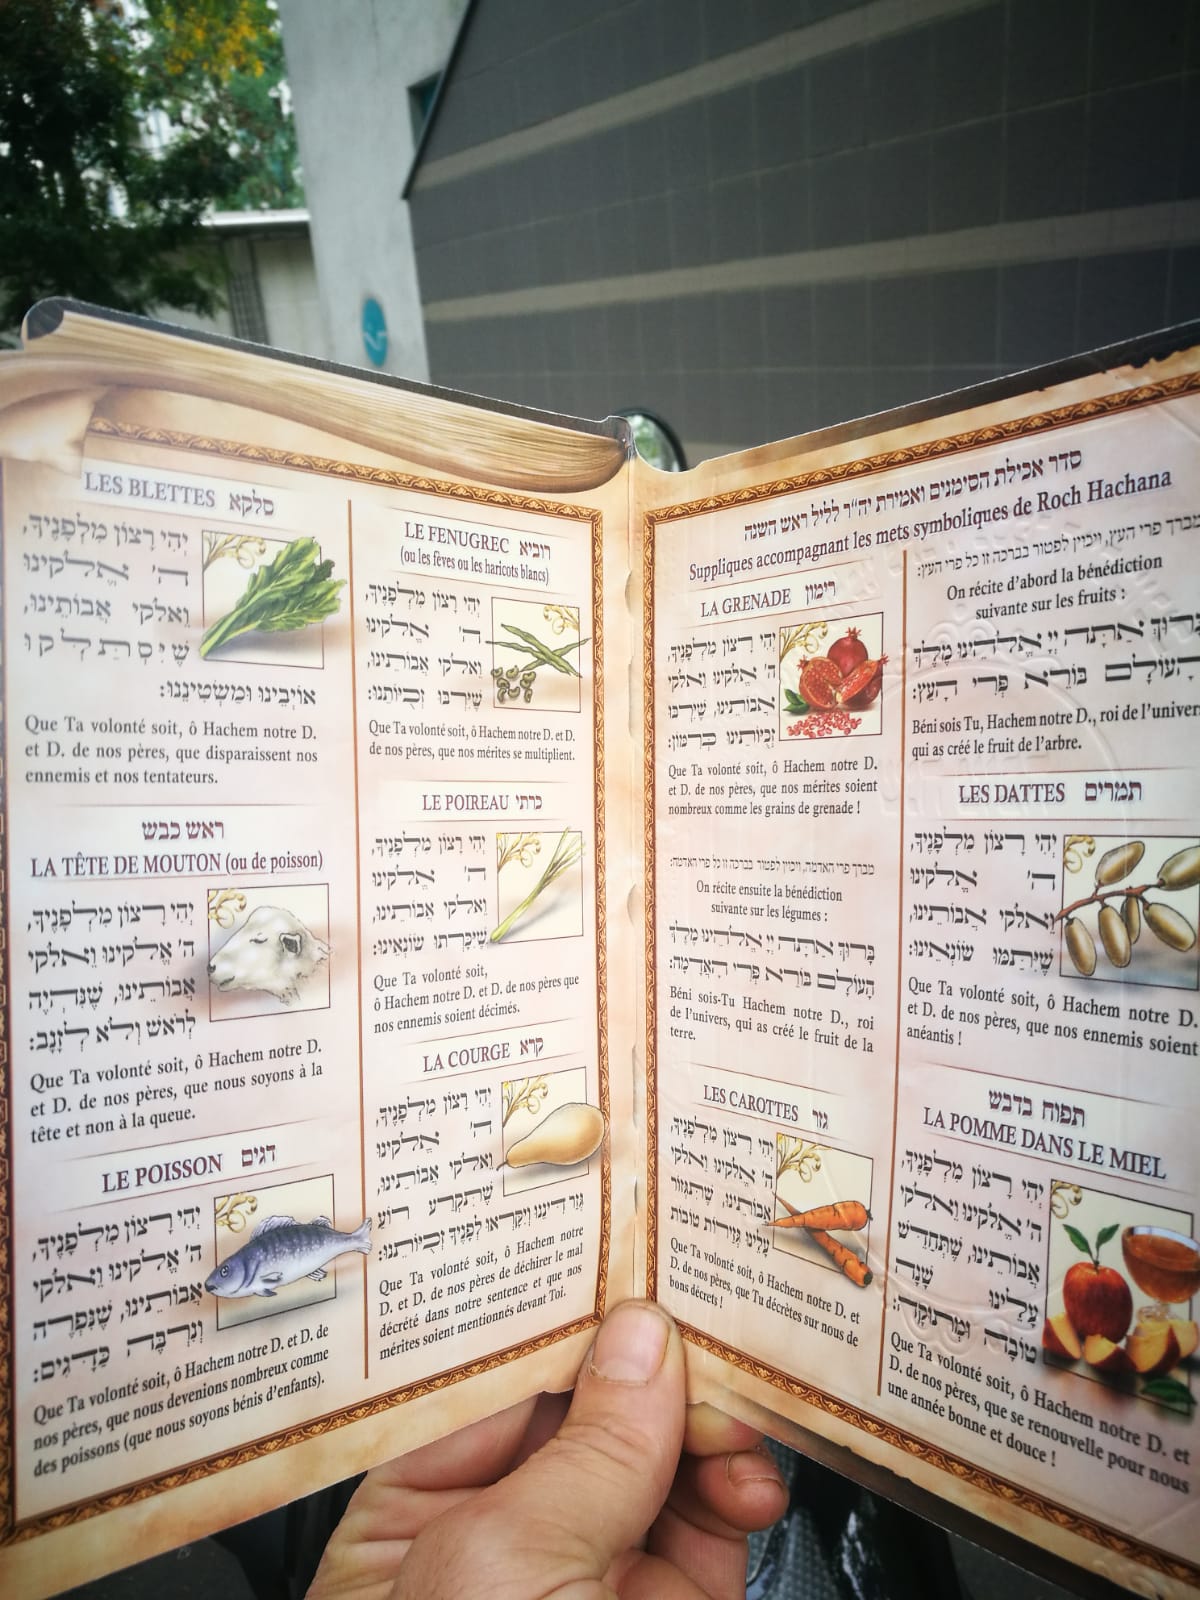 סדר אכילת הסימנים ואמירת יה״ר לליל ראש השנה
Suppliques accompagnant les mets symboliques de Roch Hachana
מברך פרי העץ, ויכוין לפטור בברכה זו כל פרי העץ:
On récite d'abord la bénédiction
suivante sur les fruits :
בָּרוּךְ אַתָּה יְיָ אֱלֹהֵינוּ מֶלֶךְ
הָעוֹלָם בּוֹרֵא פְּרִי הָעֵץ:
Béni sois Tu, Hachem notre D., roi de l'univers
qui as créé le fruit de l'arbre.
LES DATTES תמרים
יְהִי רָצוֹן מִלְּפָנֶיךָ,
ה' אֱלֹקֵינוּ
וֵאלֹקֵי אֲבוֹתֵינוּ,
שֶׁיִּתַּמּוּ שׂוֹנְאֵינוּ:
Que Ta volonté soit, ô Hachem notre D.
et D. de nos pères, que nos ennemis soient
anéantis !
תפוח בדבש
LA POMME DANS LE MIEL
יְהִי רָצוֹן מִלְּפָנֶיךָ,
ה' אֱלֹקֵינוּ וֵאלֹקֵי
אֲבוֹתֵינוּ, שֶׁתְּחַדֵּשׁ
עָלֵינוּ שָׁנָה
טוֹבָה וּמְתוּקָה:
Que Ta volonté soit, ô Hachem notre D. et
D. de nos pères, que se renouvelle pour nous
une année bonne et douce !
LA GRENADE רימון
יְהִי רָצוֹן מִלְּפָנֶיךָ,
ה' אֱלֹקֵינוּ וֵאלֹקֵי
אֲבוֹתֵינוּ, שֶׁיִּרְבּוּ
זְכֻיּוֹתֵינוּ כְּרִמּוֹן:
Que Ta volonté soit, ô Hachem notre D.
et D. de nos pères, que nos mérites soient
nombreux comme les grains de grenade !
מברך פרי האדמה, ויכוין לפטור בברכה זו כל פרי האדמה:
On récite ensuite la bénédiction
suivante sur les légumes :
בָּרוּךְ אַתָּה יְיָ אֱלֹהֵינוּ מֶלֶךְ
הָעוֹלָם בּוֹרֵא פְּרִי הָאֲדָמָה:
Béni sois-Tu Hachem notre D., roi
de l'univers, qui as créé le fruit de la
terre.
LES CAROTTES גזר
יְהִי רָצוֹן מִלְּפָנֶיךָ,
ה' אֱלֹקֵינוּ וֵאלֹקֵי
אֲבוֹתֵינוּ, שֶׁתִּגְזוֹר
עָלֵינוּ גְּזֵרוֹת טוֹבוֹת
Que Ta volonté soit, ô Hachem notre D. et
D. de nos pères, que Tu décrètes sur nous de
bons décrets !
LE FENUGREC רוביא
(ou les fèves ou les haricots blancs)
יְהִי רָצוֹן מִלְּפָנֶיךָ,
ה' אֱלֹקֵינוּ
וֵאלֹקֵי אֲבוֹתֵינוּ,
שֶׁיִּרְבּוּ זְכֻיּוֹתֵנוּ:
Que Ta volonté soit, ô Hachem notre D. et D.
de nos pères, que nos mérites se multiplient.
LE POIREAU כרתי
יְהִי רָצוֹן מִלְּפָנֶיךָ,
ה' אֱלֹקֵינוּ
וֵאלֹקֵי אֲבוֹתֵינוּ,
שֶׁיִּכָּרְתוּ שׂוֹנְאֵינוּ:
Que Ta volonté soit,
ô Hachem notre D. et D. de nos pères que
nos ennemis soient décimés.
LA COURGE קרא
יְהִי רָצוֹן מִלְּפָנֶיךָ,
ה' אֱלֹקֵינוּ
וֵאלֹקֵי אֲבוֹתֵינוּ,
שֶׁתִּקְרַע רוֹעַ
גְּזַר דִּינֵנוּ וְיִקָּרְאוּ לְפָנֶיךָ זְכֻיּוֹתֵנוּ:
Que Ta volonté soit, ô Hachem notre
D. et D. de nos pères de déchirer le mal
décrété dans notre sentence et que nos
mérites soient mentionnés devant Toi.
LES BLETTES סלקא
יְהִי רָצוֹן מִלְּפָנֶיךָ,
ה' אֱלֹקֵינוּ
וֵאלֹקֵי אֲבוֹתֵינוּ,
שֶׁיִּסְתַּלְּקוּ
אוֹיְבֵינוּ וּמַשְׂטִינֵנוּ:
Que Ta volonté soit, ô Hachem notre D.
et D. de nos pères, que disparaissent nos
ennemis et nos tentateurs.
ראש כבש
LA TÊTE DE MOUTON (ou de poisson)
יְהִי רָצוֹן מִלְּפָנֶיךָ,
ה' אֱלֹקֵינוּ וֵאלֹקֵי
אֲבוֹתֵינוּ, שֶׁנִּהְיֶה
לְרֹאשׁ וְלֹא לְזָנָב:
Que Ta volonté soit, ô Hachem notre D.
et D. de nos pères, que nous soyons à la
tête et non à la queue.
LE POISSON דגים
יְהִי רָצוֹן מִלְּפָנֶיךָ,
ה' אֱלֹקֵינוּ וֵאלֹקֵי
אֲבוֹתֵינוּ, שֶׁנִּפְרֶה
וְנִרְבֶּה כַּדָּגִים:
Que Ta volonté soit, ô Hachem notre D. et D. de
nos pères, que nous devenions nombreux comme
des poissons (que nous soyons bénis d'enfants).